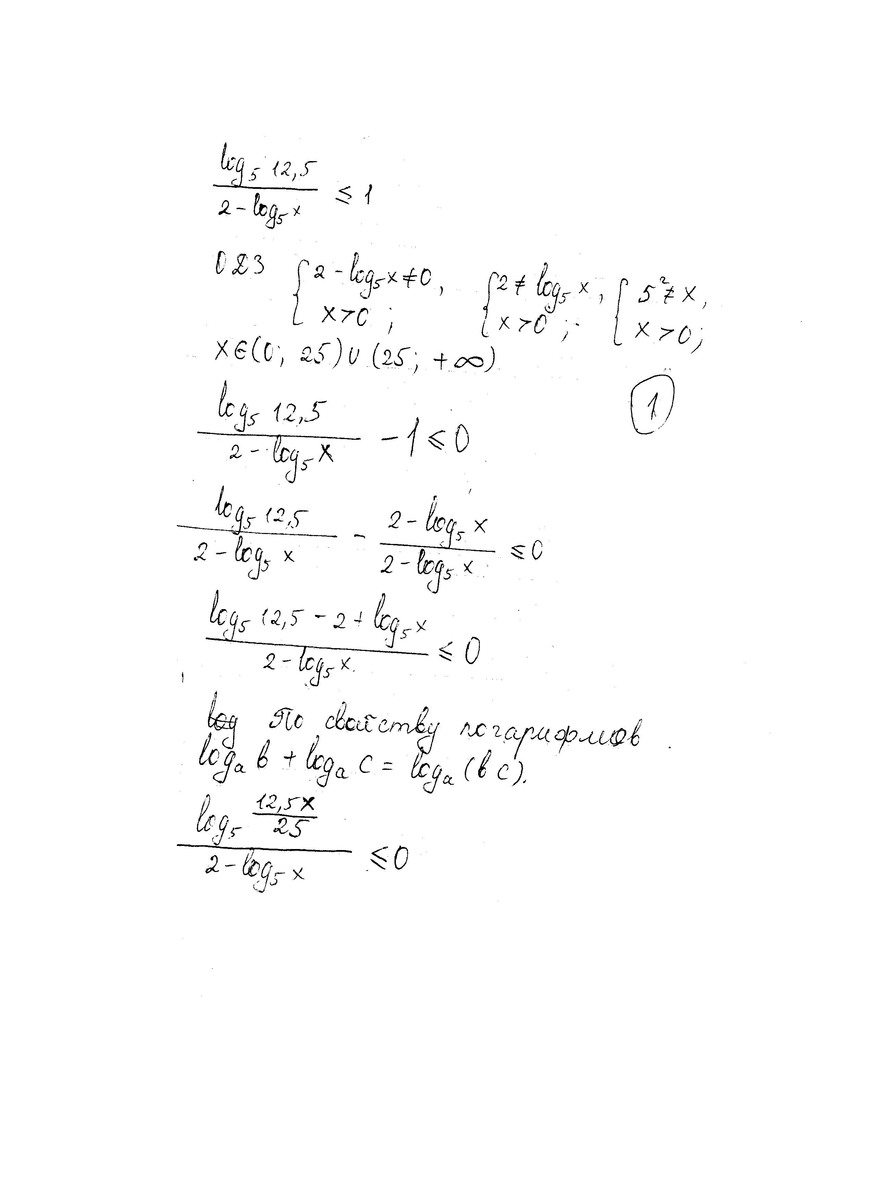 log₅ 12,5 / 2 - log₅ x ≤ 1
ОДЗ { 2 - log₅ x ≠ 0, x > 0; { 2 ≠ log₅ x, x > 0; { 5² ≠ x, x > 0;
x ∈ (0; 25) ∪ (25; +∞)
1
log₅ 12,5 / 2 - log₅ x - 1 ≤ 0
log₅ 12,5 / 2 - log₅ x - 2 - log₅ x / 2 - log₅ x ≤ 0
log₅ 12,5 - 2 + log₅ x / 2 - log₅ x ≤ 0
По свойству логарифмов
logₐ b + logₐ c = logₐ (b c).
log₅ 12,5x / 25 / 2 - log₅ x ≤ 0